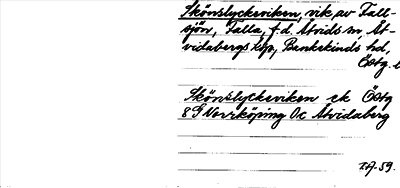 Skönslyckeviken, vik av Fall-
sjön, Falla, f.d. Åtvids sn, Åt-
vidabergs kpg, Bankekinds hd,
Östg. l
Skönslyckeviken ek Östg
8 G Norrköping 0c Åtvidaberg
59.